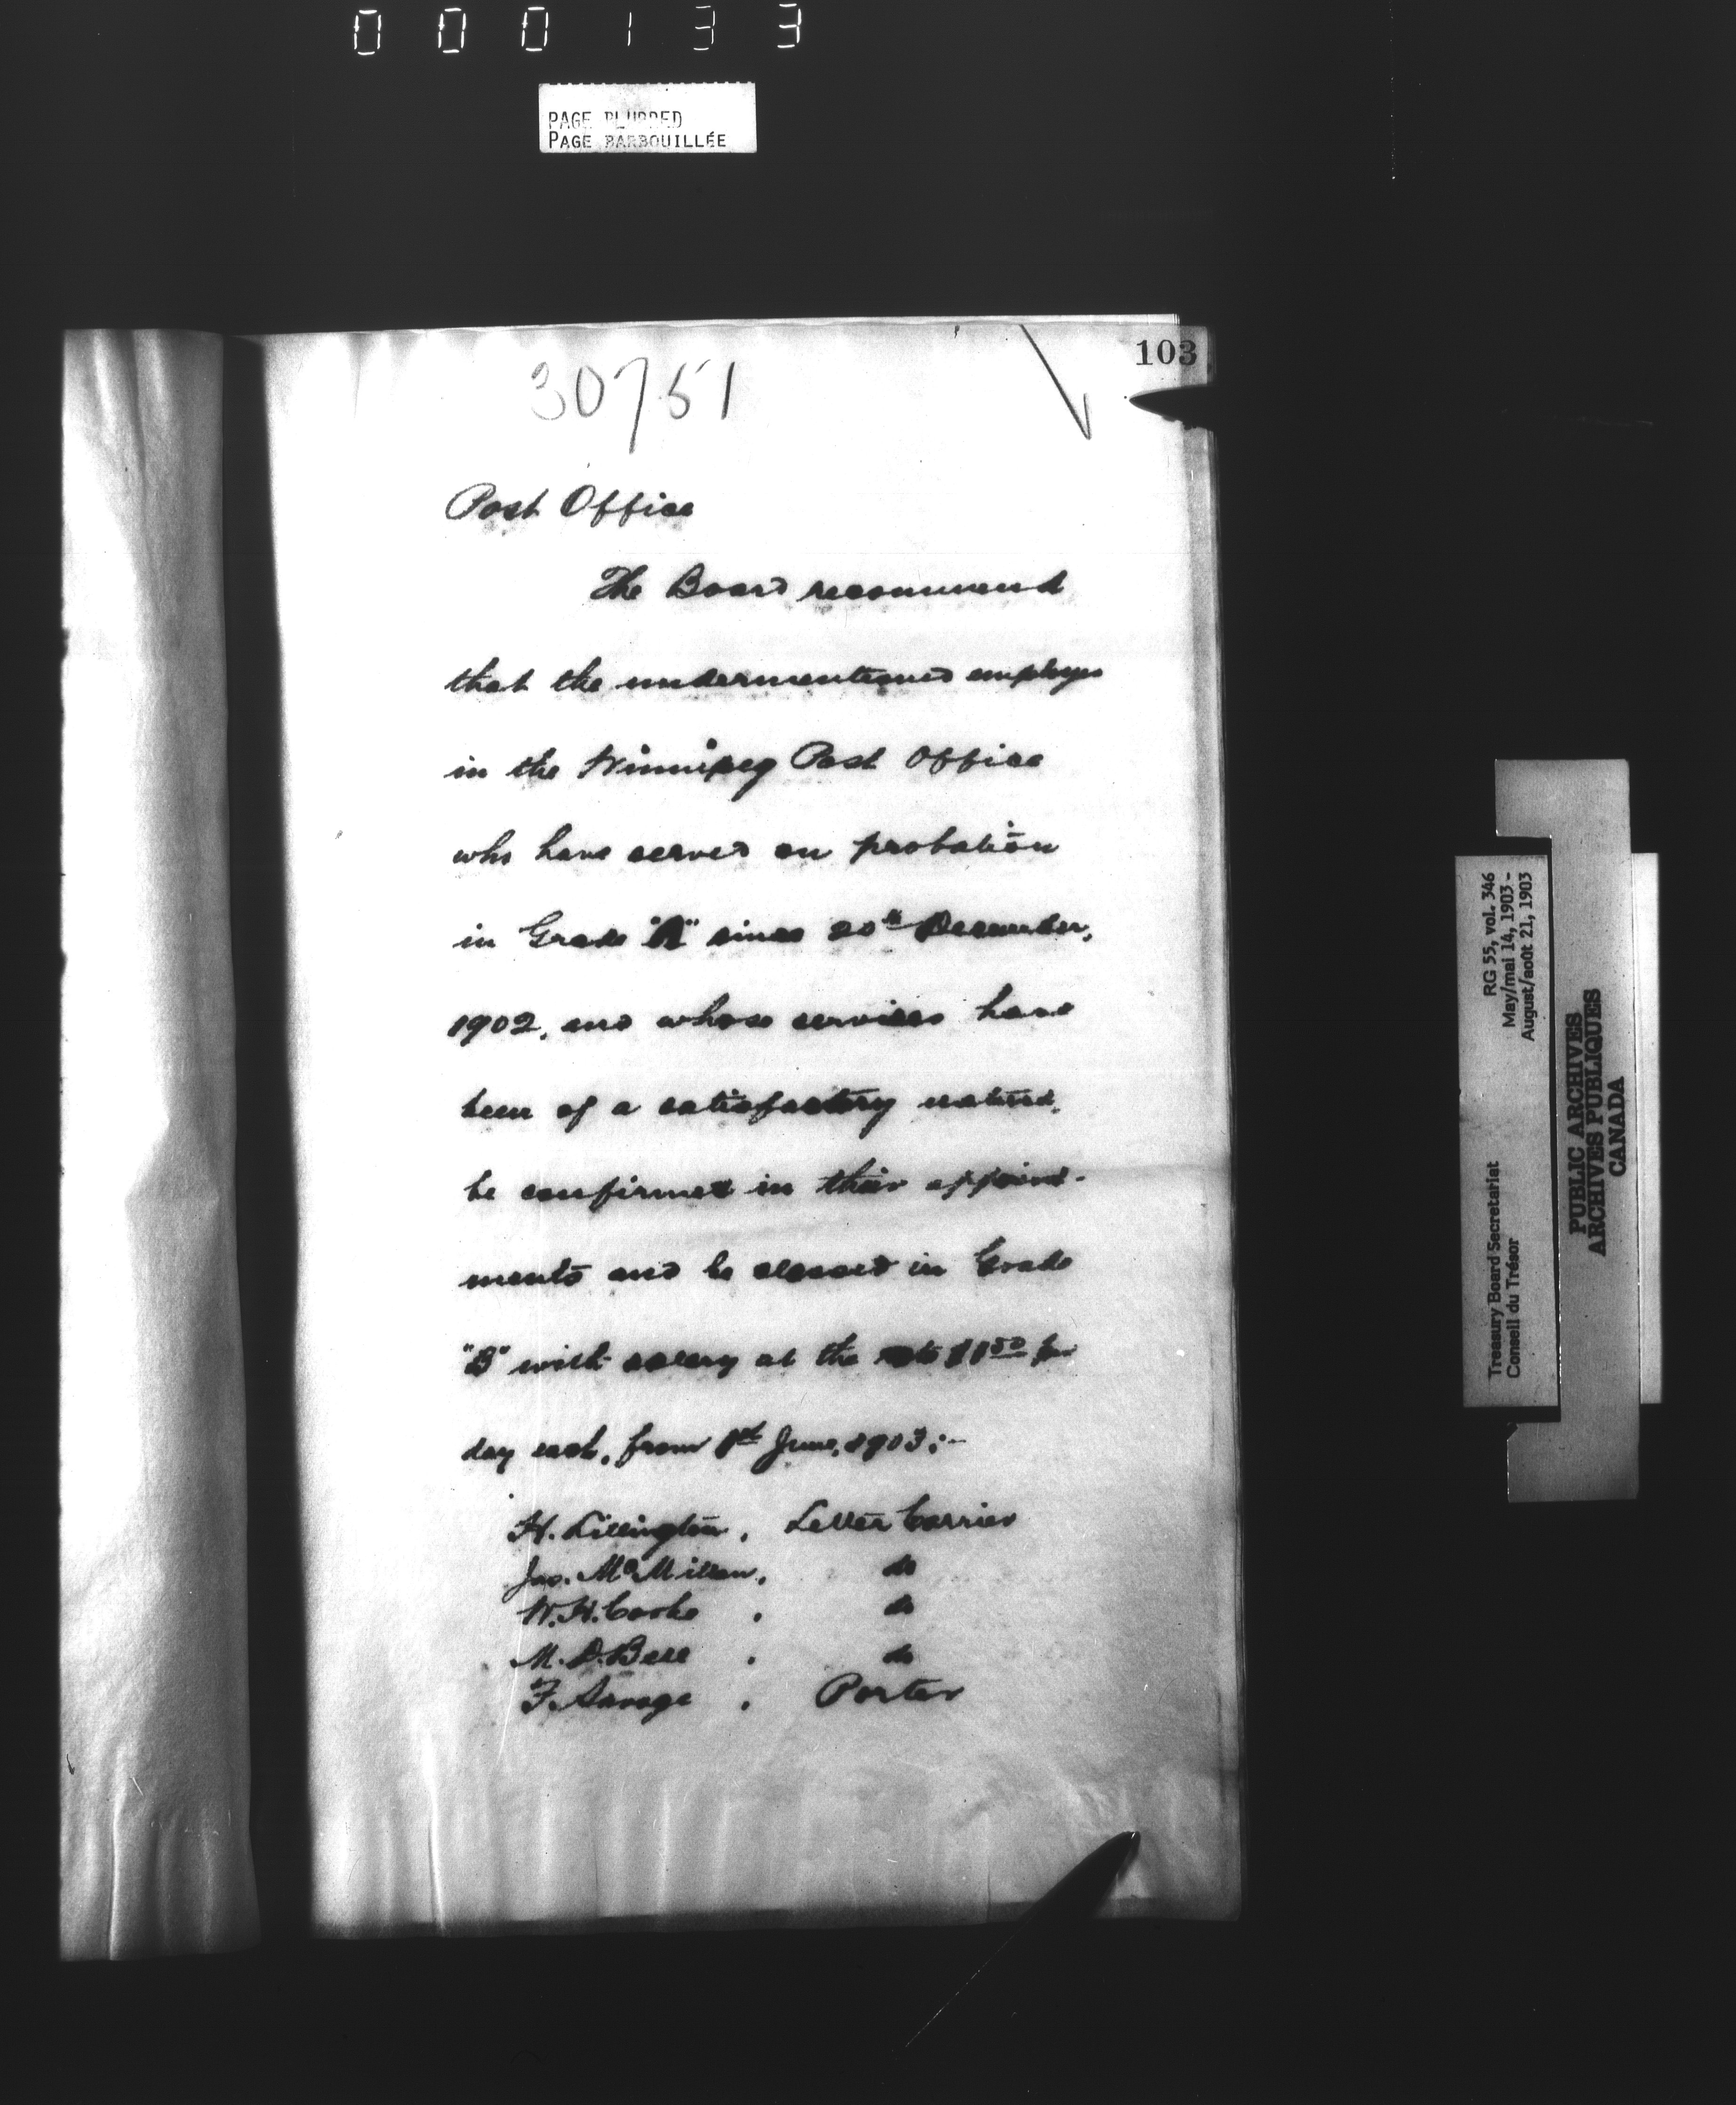 000133
PAGE BLURRED
PAGE BARBOUILLÉE
103
30751
Post Office
The Board recommend
that the undermentioned employes
in the Winnipeg Post Office
who have served on probation
in Grade "A" since 20th December,
1902, and whose services have
been of a satisfactory nature,
be confirmed in their appoint-
ments and be classed in Grade
"B" with salary at the rate $1.50 per
day each, from 1st June, 1903:-
H. Lillington, Letter Carrier
Jas. McMillan, do
W.H. Cooke, do
M.D. Bell, do
F. Savage, Porter
RG 55, vol. 346
May/mai 14, 1903 -
August/août 21, 1903
Treasury Board Secretariat
Conseil du Trésor
PUBLIC ARCHIVES
ARCHIVES PUBLIQUES
CANADA